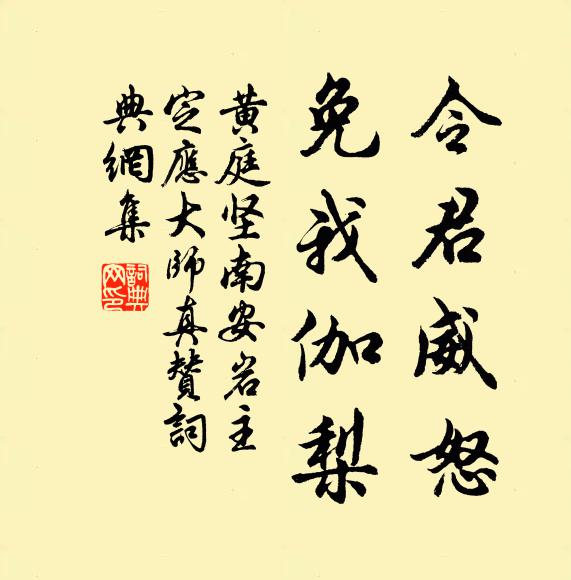 令君威怒
免我伽梨
黄庭坚南安岩主
定應大師真赞詞
典網集
詞典网印